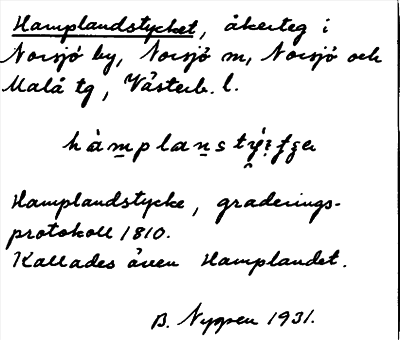 Hamplandstycket, åkerteg i
Norsjö by, Norsjö sn, Norsjö och
Malå tg, Västerb. l.
Hamplandstycke, graderings-
protokoll 1810.
Kallades även Hamplandet.
B. Nygren 1931.